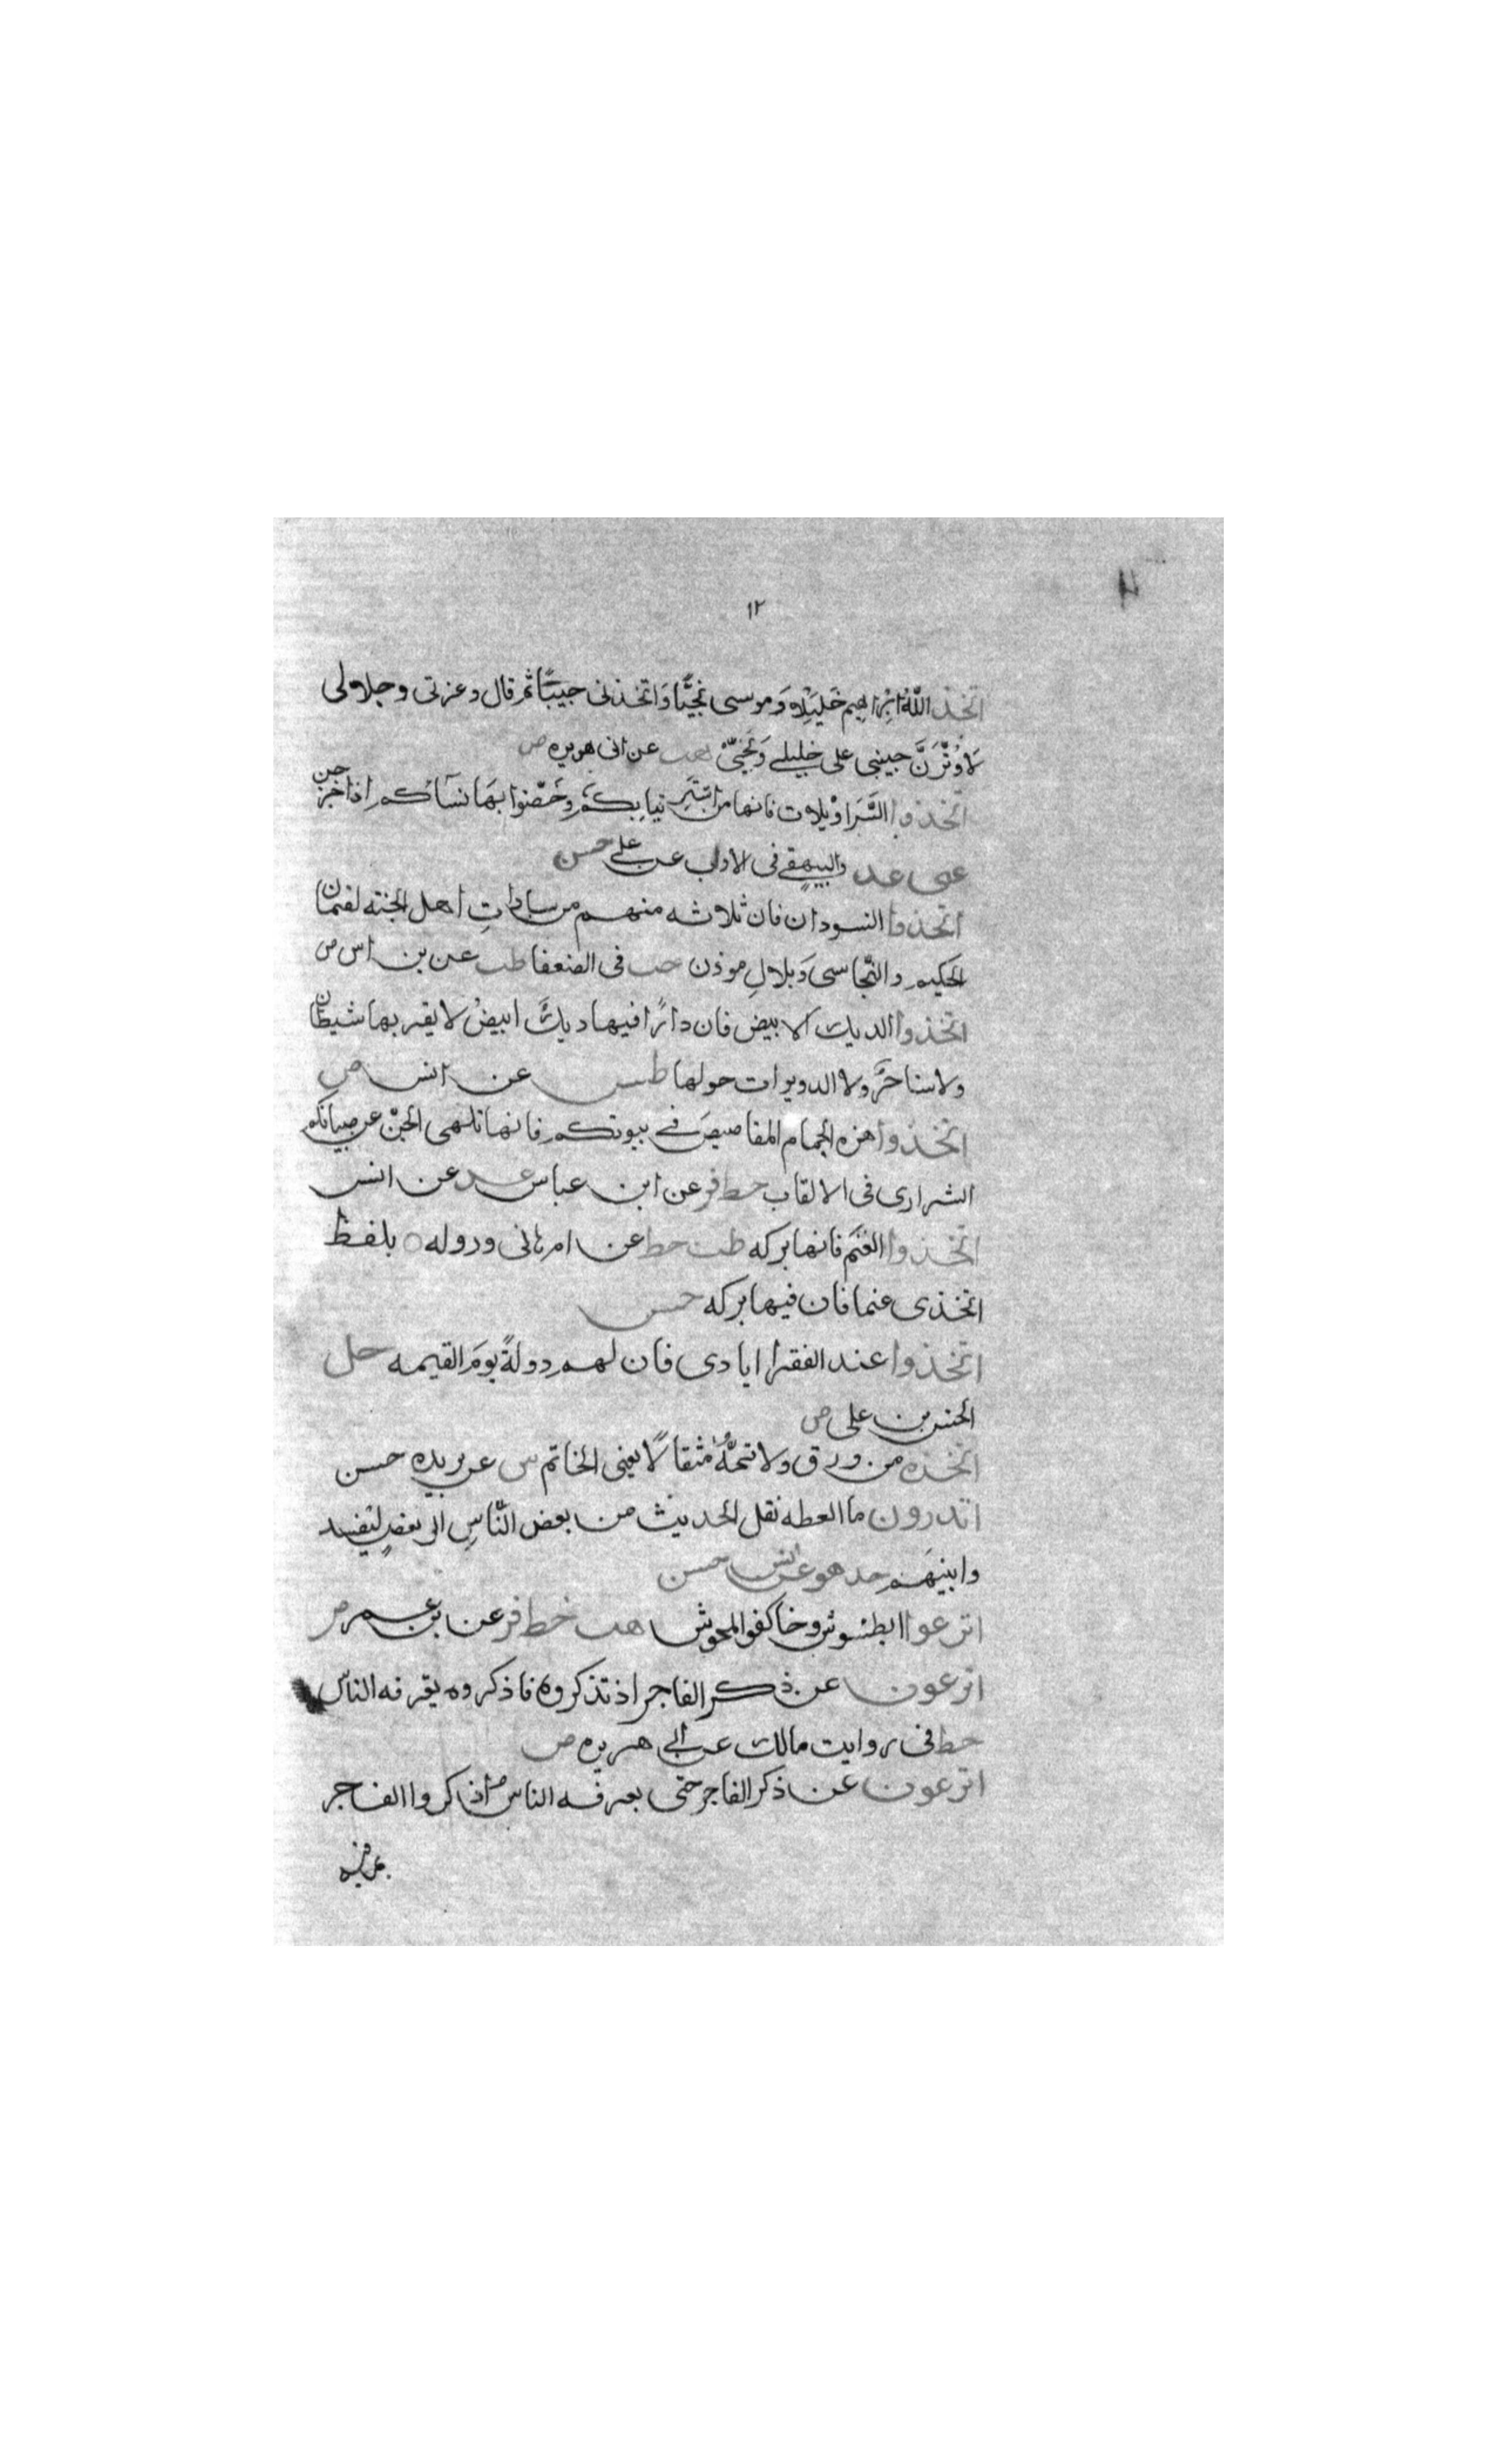 ١٢
اتخذ اللّٰه ابراهيم خليلا وموسى نجيّا واتخذنى حبيبًا ثم قال وعزتى وجلالى
لاوثرنّ حبيبى على خليلے ونجيّى هب عن ابى هريره ض
اتخذوا السّراويلات فانها من استر ثيابكم وحصّنوا بها نسآئكم اذا خرجن
عق عد والبيهقے فى الادب عن علے حسن
اتخذوا السودان فان ثلاثه منهم من سادات اهل الجنه لقمان
الحكيم والنّجاسى وبلال موذن حب فى الضعفا طب عن بن اس ض
اتخذوا الديك الابيض فان دارًا فيها ديك ابيض لا يقربها شيطان
ولا ساحر ولا الدويرات حولها طس عن انس ض
اتخذوا هذه الحمام المقاصيص فے بيوتكم فانها تلهى الجنّ عن صبيانكم
الشرارى فى الالقاب خط فر عن ابن عباس عد عن انس
اتخذوا الغنم فانها بركه طب خط عن ام هانى ورواه ه بلفظ
اتخذى غنما فان فيها بركه حسن
اتخذوا عند الفقرا ايادى فان لهم دولةً يوم القيمه حل
الحسن بن على ض
اتخذه من ورق ولا تتمّه مثقالًا يعنى الخاتم س عن بريده حسن
اتدرون ما العطه نقل الحديث من بعض النّاس الى بعض ليفسد
وا بينهم خد هو عن انس حسن
اترعوا الطسوس وخالفو المجوش هب خط فر عن بن عمر ض
اترعون عن ذكر الفاجر اذ تذكروه فاذكروه يعرفه الناس
خط فى روايت مالك عن ابى هريره ض
اترعون عن ذكر الفاجر حتى يعرفه الناس اذكروا الفاجر